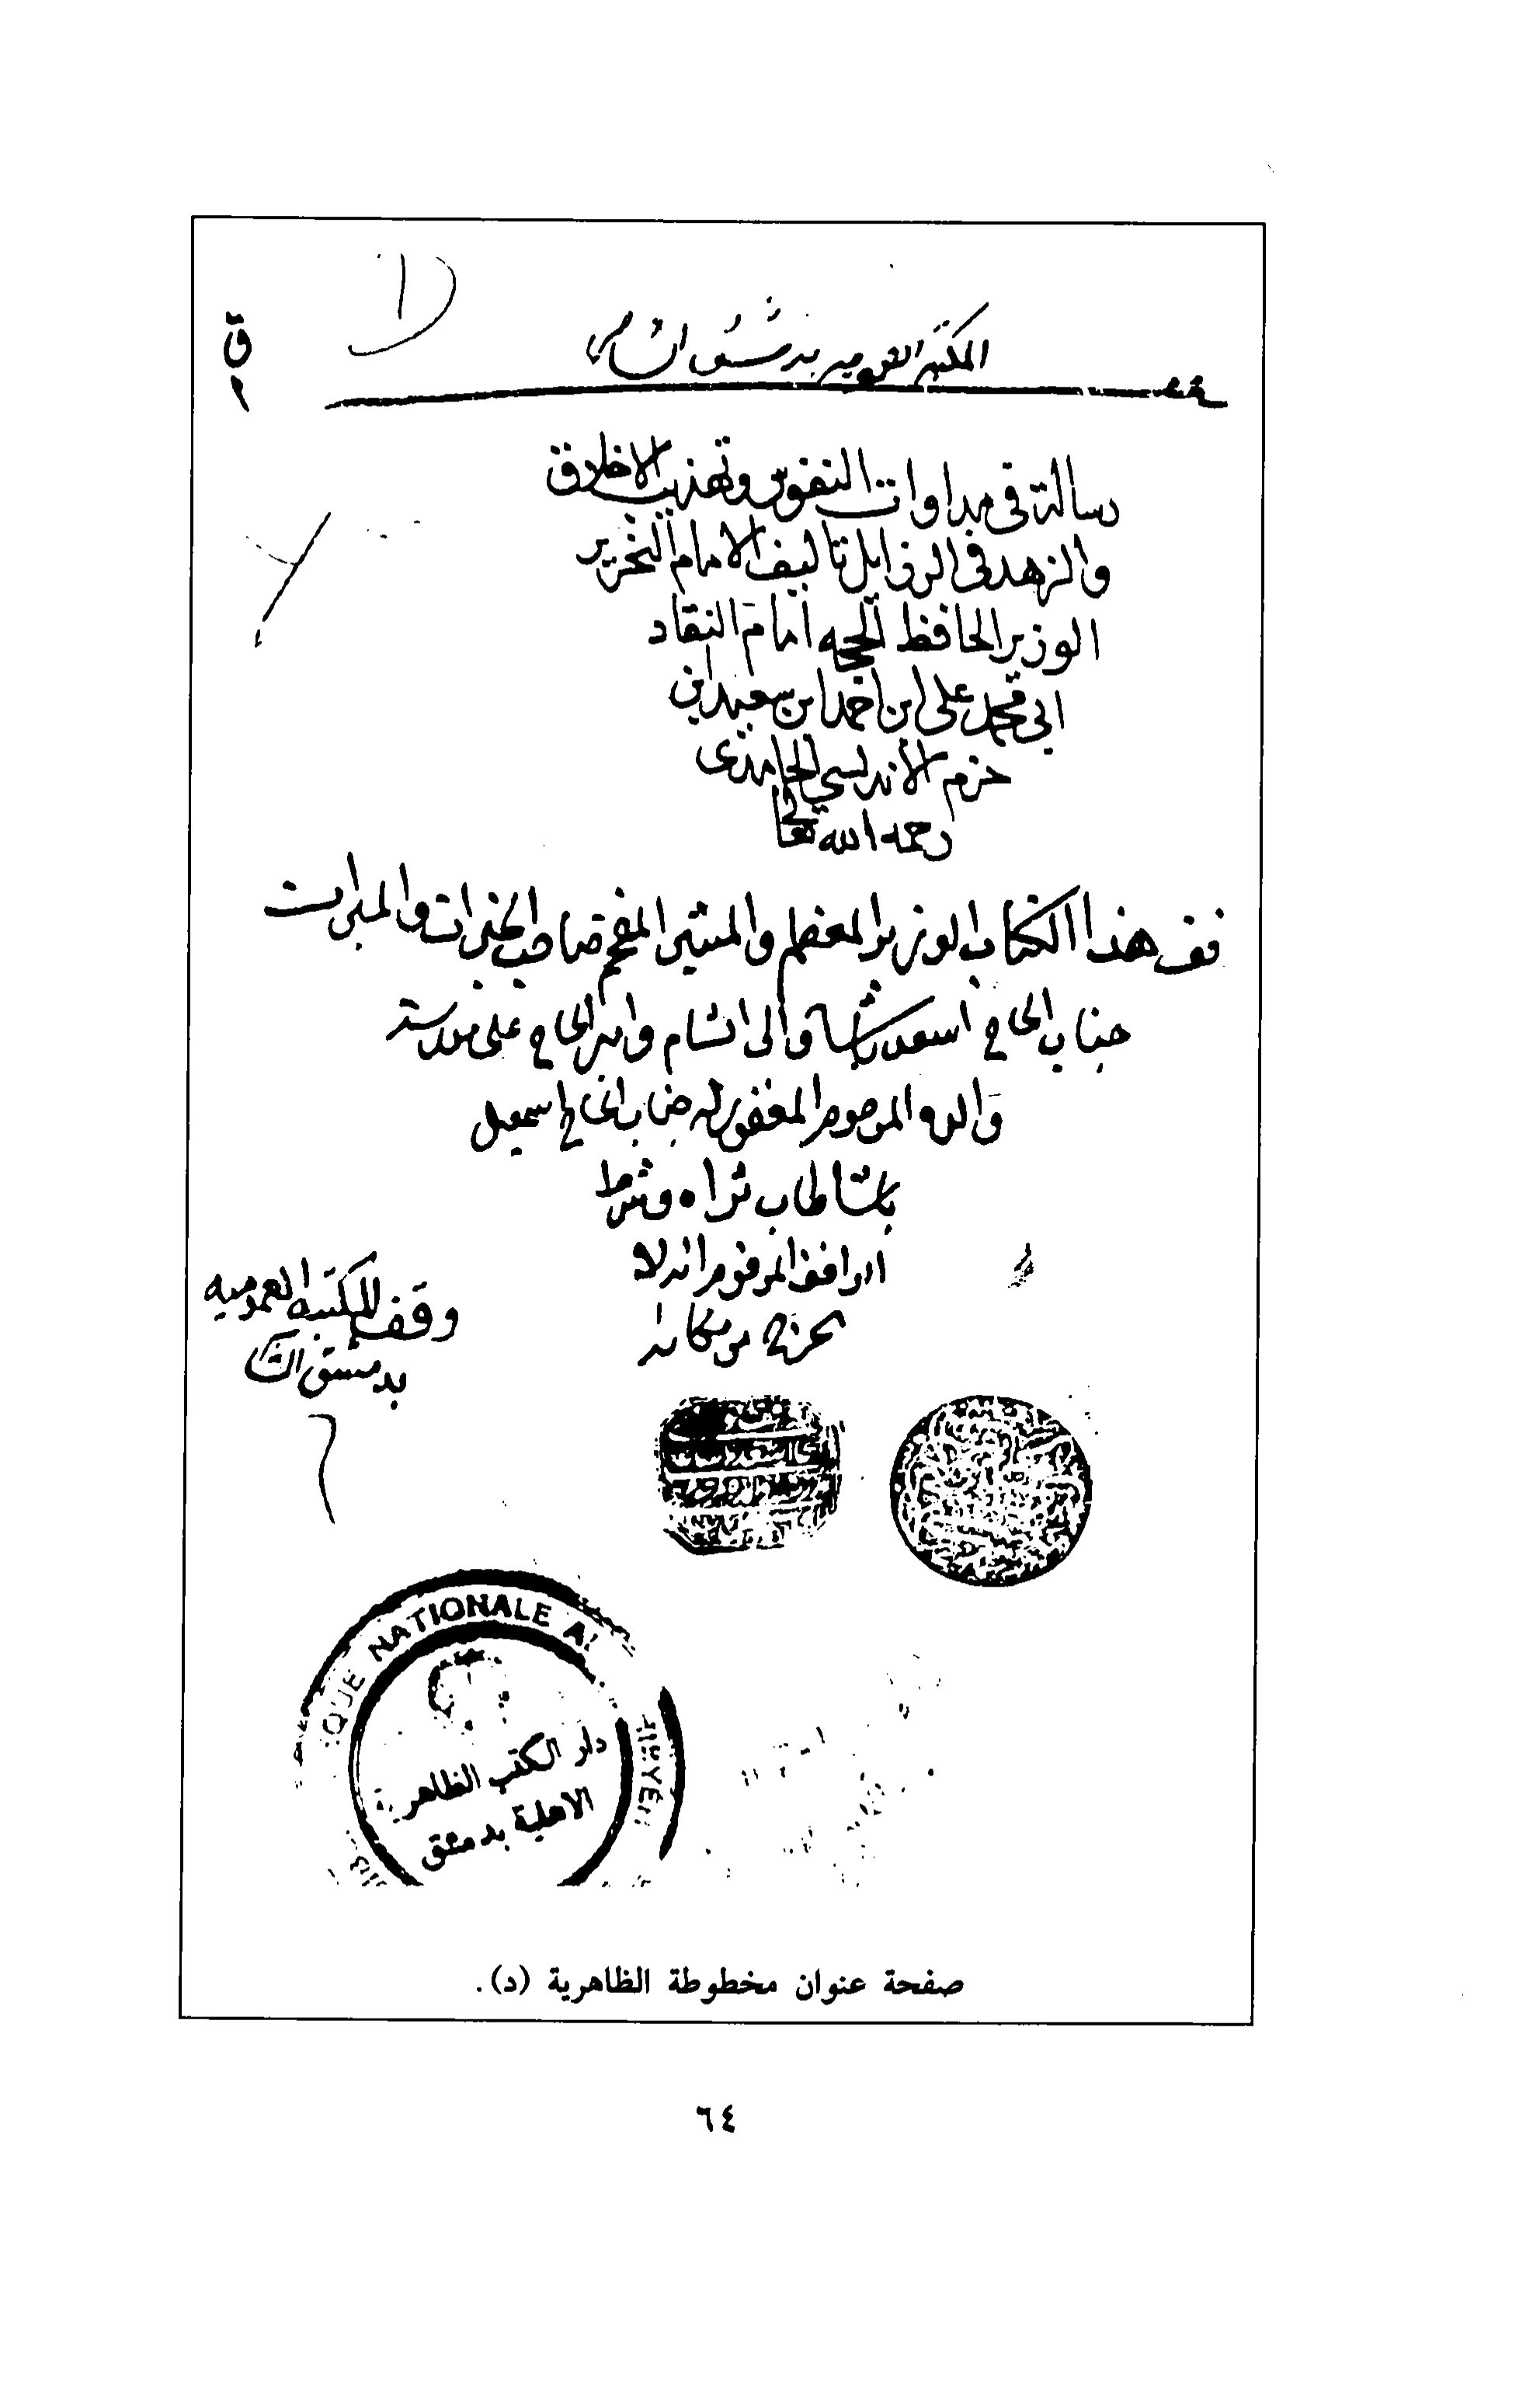 ق
المكتبة العموميه بدمشق الشام
رسالة في مداوات النفوس وتهذيب الاخلاق
والزهد في الرذايل تاليف الامام النحرير
الوزير الحافظ الحجه امام النقاد
ابي محمد علي ابن احمد ابن سعيد ابن
حزم الأندلسي
رحمه الله تعالى
قف هذا الكتاب الوزير المعظم والمشير المفخم صاحب الخيرات والمبرات
جناب الحاج اسعد باشا والى الشام وامير الحاج على مدرسة
والده المرحوم المغفور له جناب الحاج اسمعيل
باشا طاب ثراه وشرط
الواقف المرقوم انه لا
يخرج من مكانه
وقف المكتبه العموميه
بدمشق الشا
QUE NATIONALE A
دار الكتب الظاهر
الاهلية بدمشق
صفحة عنوان مخطوطة الظاهرية (د).
٦٤